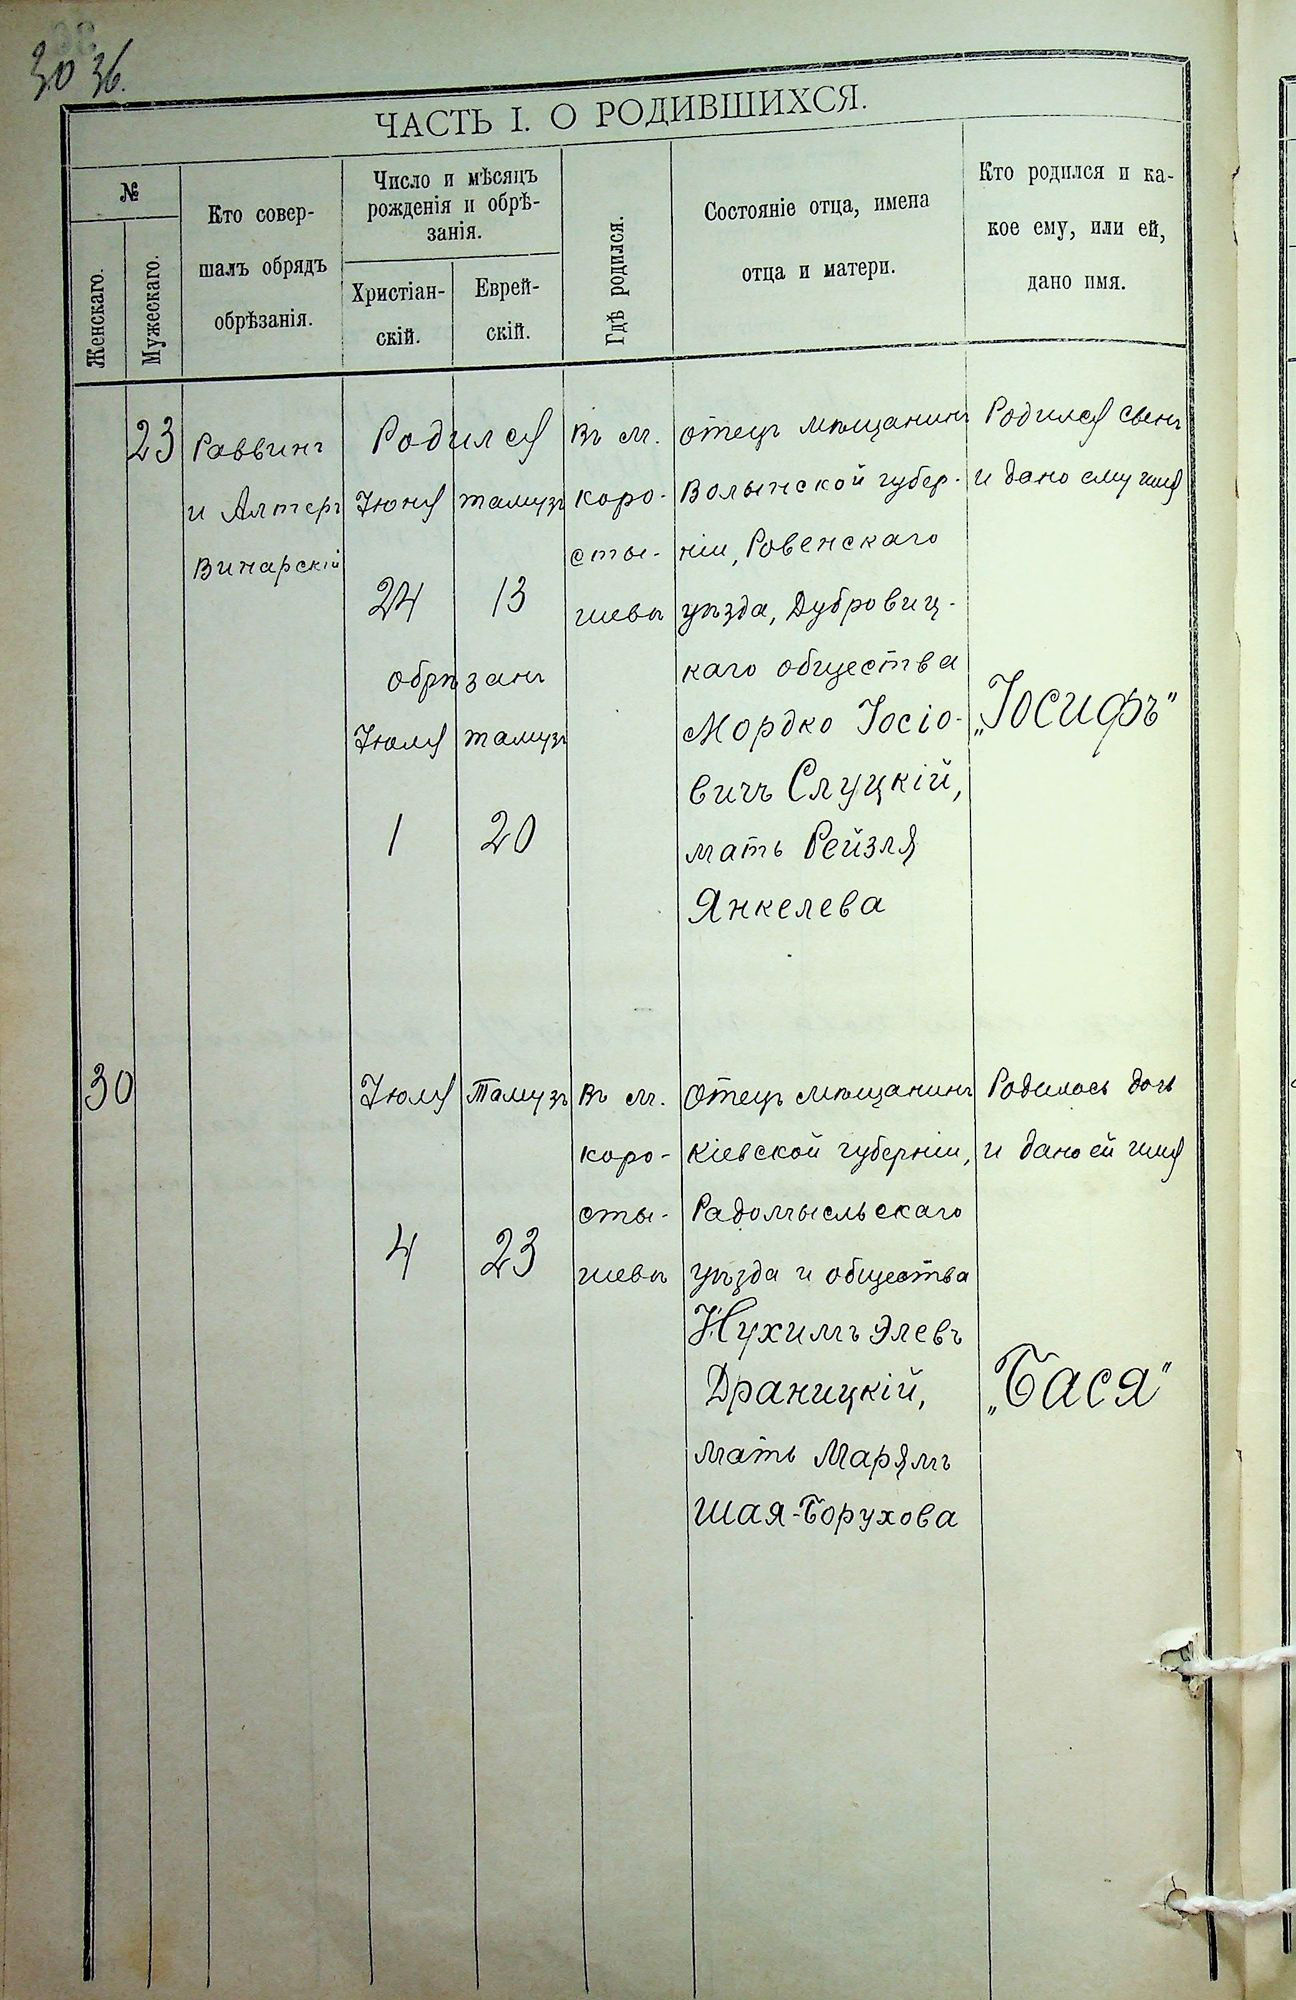 30 36.
ЧАСТЬ I. О РОДИВШИХСЯ.
№
Женскаго.
Мужескаго.
Кто совер-
шалъ обрядъ
обрѣзанія.
Число и мѣсяцъ
рожденія и обрѣ-
занія.
Христіан-
скій.
Еврей-
скій.
Гдѣ родился.
Состояніе отца, имена
отца и матери.
Кто родился и ка-
кое ему, или ей,
дано имя.
23
Раввинъ
и Алтеръ
Винарскій
Родился
Іюня тамузъ
24 13
обрѣзанъ
Іюля тамузъ
1 20
Въ м.
Коро-
сты-
шевѣ
отецъ мѣщанинъ
Волынской губер-
ніи, Ровенскаго
уѣзда, Дубровиц-
каго общества
Мордко Іосіо-
вичъ Слуцкій,
мать Рейзля
Янкелева
Родился сынъ
и дано ему имя
„Іосифъ"
30
Іюля Тамузъ
4 23
Въ м.
Коро-
сты-
шевѣ
Отецъ мѣщанинъ
Кіевской губерніи,
Радомысльскаго
уѣзда и общества
Нухимъ Элевъ
Драницкій,
мать Марямъ
Шая-Борухова
Родилась дочь
и дано ей имя
„Бася"